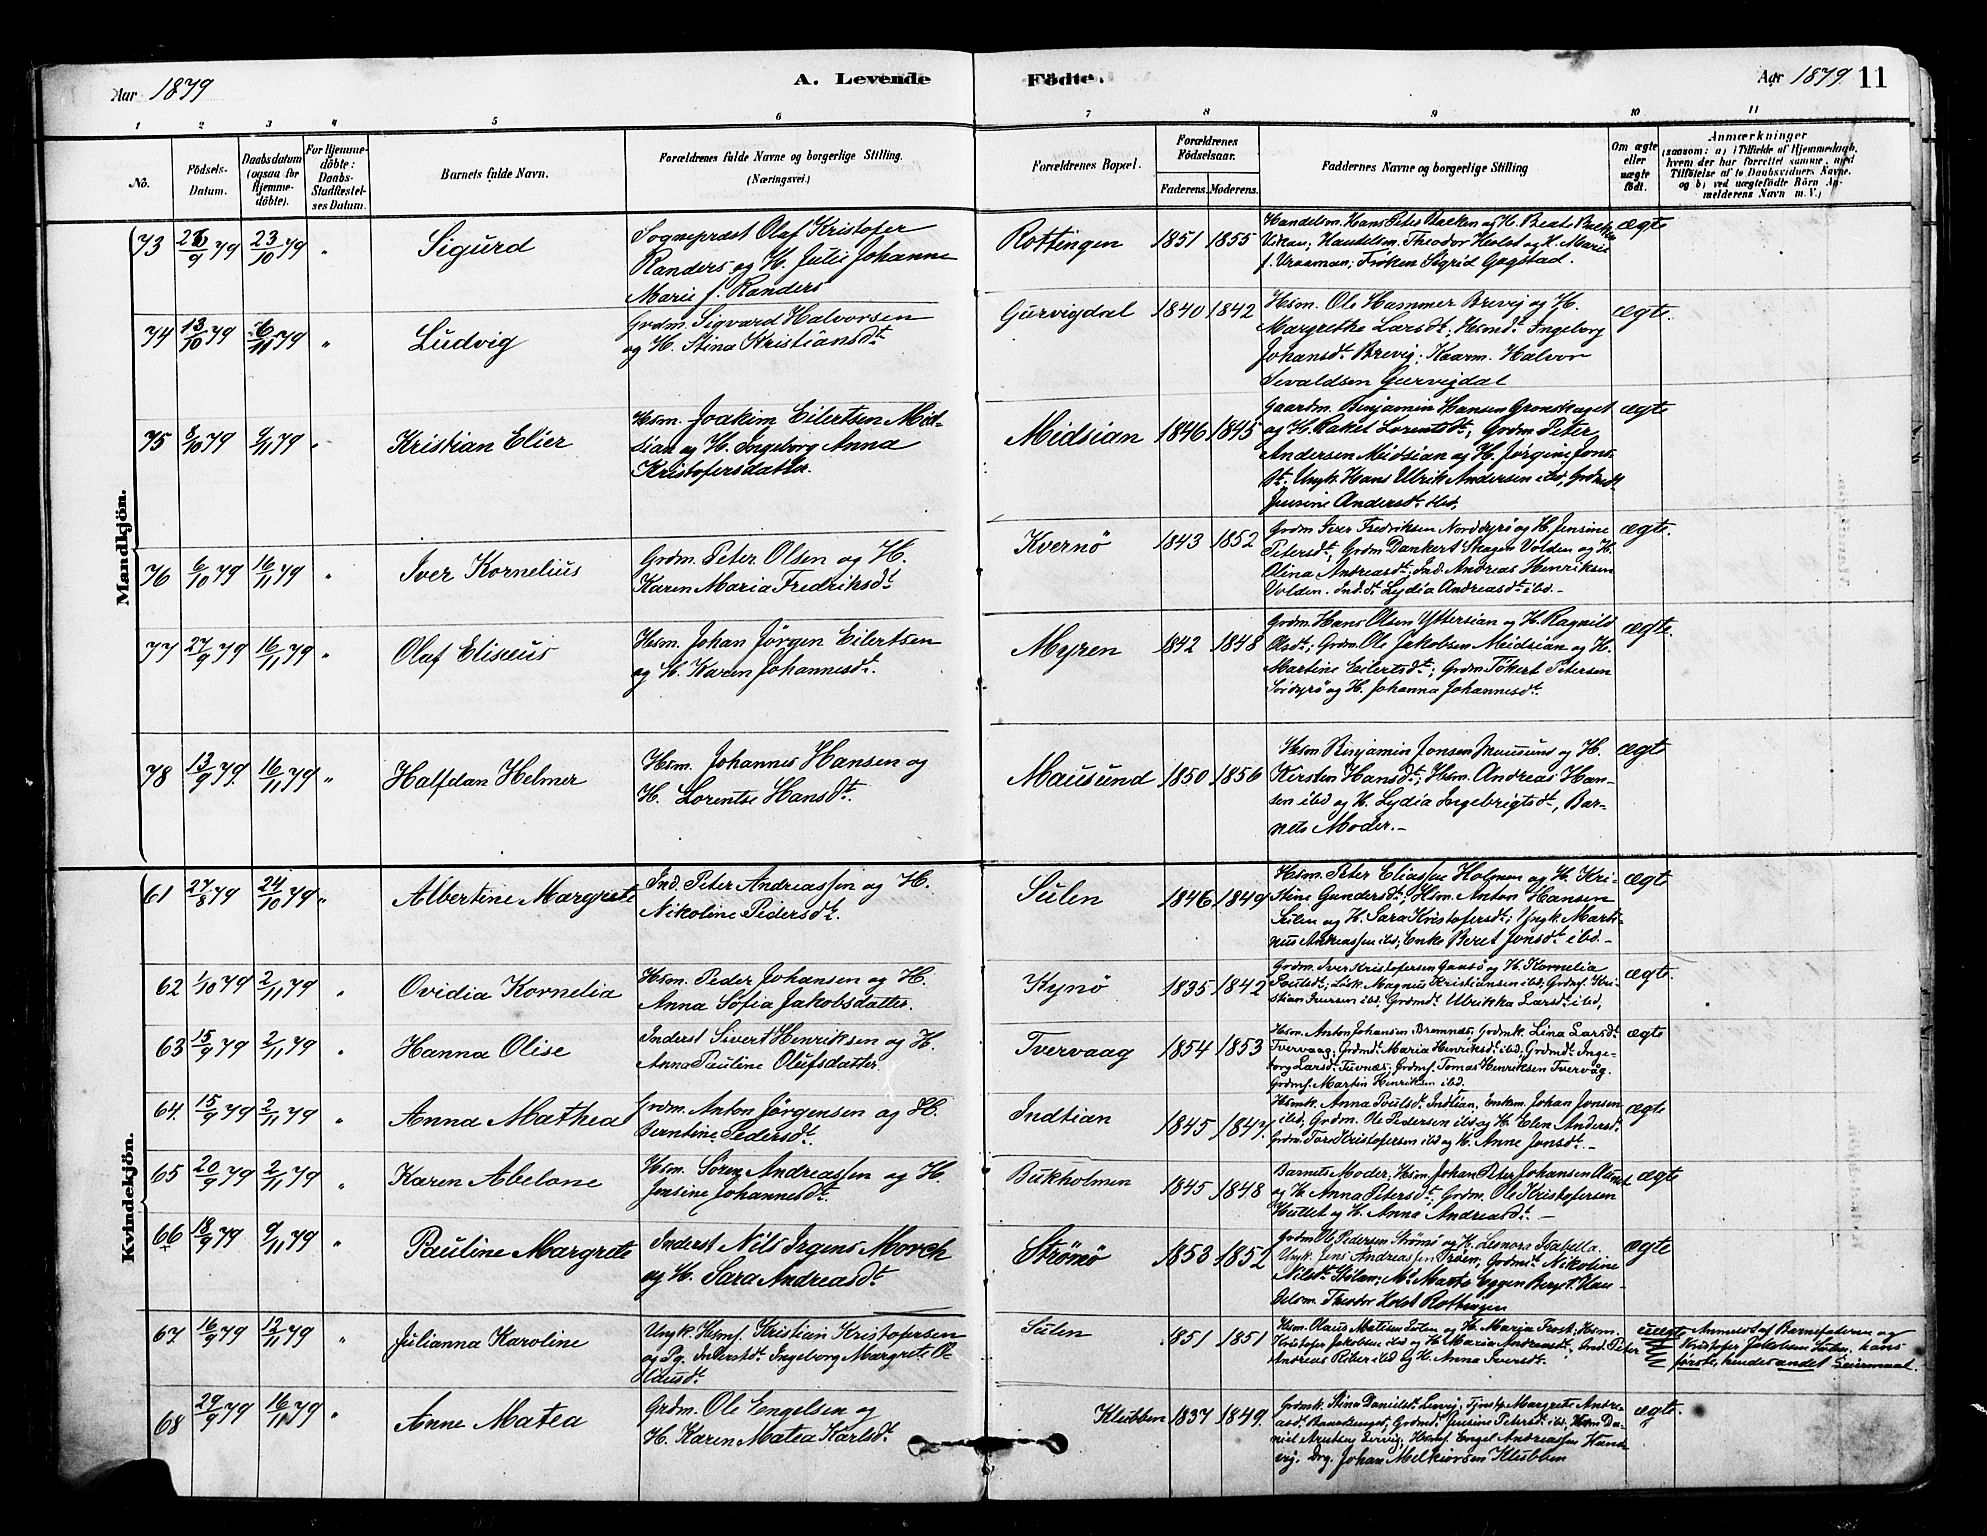 Aar 1879
A. Levende
Födte.
Aar 1879. 11
1 2 3 4 5 6 7 8 9 10 11
No.
Födsels-
Datum.
Daabsdatum
(ogsaa for
Hjemme-
döbte).
For Hjemme-
döbte:
Daabs-
Stadfæstel-
ses Datum.
Barnets fulde Navn.
Forældrenes fulde Navne og borgerlige Stilling.
(Næringsvei.)
Forældrenes Bopæl.
Forældrenes
Födselsaar.
Faderens. Moderens.
Faddernes Navne og borgerlige Stilling
Om ægte
eller
uægte
födt.
Anmærkninger
(saasom: a) i Tilfælde af Hjemmedaab,
hvem der har forrettet samme, med
Tilföielse af to Daabsvidners Navne.
og b) ved uægtefödte Börn An-
melderens Navn m. V.)
Mandkjön.
73 26/9 79 23/10 79 "
Sigurd
Sognepræst Olaf Kristofer
Randers og H. Julie Johanne
Marie f. Randers
Rottingen 1851 1855
Handelsm. Hans Peter Bakken og H. Beat Bakken
Handelsm. Theodor Holst og H. Marie
f. Vraaman; Frøken Sigrid Gogstad.
ægte
74 13/10 79 6/11 79 "
Ludvig
Grdm. Sigvard Halvorsen
og H. Stina Kristiansdt.
Gurvigdal 1840 1842
Hsm. Ole Hammer Brevig og H.
Margrethe Larsdt; Hsmdt. Ingeborg
Johansdt Brevig; Kaarm. Halvor
Sevaldsen Gurvigdal
ægte.
75 8/10 79 9/11 79 "
Kristian Elier
Hsm. Joakim Eilertsen Mid-
sian og H. Ingeborg Anna
Kristofersdatter.
Midsian 1846 1845
Gaardm. Binjamin Hansen Gronskaget
og H. Rakel Lorentsdt; Grdm Peter
Andersen Midsian og H. Jørgine Jons-
dt. Ungk. Hans Ulrik Andersen ibd, Grdmdt
Jensine Andersdt. ibd.
ægte
76 6/10 79 16/11 79 "
Iver Kornelius
Grdm. Peter Olsen og H.
Karen Maria Fredriksdt
Kvernö 1843 1852
Grdm Iver Fredriksen Norddyrö og H. Jensine
Petersdt; Grdm Dankert Skagen Volden og H.
Olina Andreasdt; Ind. Andreas Henriksen
Volden. Ind.dt. Lydia Andreasdt ibd.-
ægte.
77 27/9 79 16/11 79 "
Olaf Elisæus
Hsm. Johan Jörgen Eilertsen
og H. Karen Johannesdt.
Myren 1842 1848
Grdm. Hans Olsen Yttersian og H. Ragnild
Olsdt; Grdm. Ole Jakobsen Midsian og H.
Martine Eilertsdt; Grdm Tökert Petersen
Sördyrö og H. Johanna Johannesdt.
ægte.
78 13/9 79. 16/11 79 "
Halfdan Helmer
Hsm. Johannes Hansen og
H. Lorentse Hansdt.
Mausund 1850 1856
Hsm Binjamin Jonsen Mausund og H.
Kirsten Hansdt; Hsm. Andreas Han-
sen ibd og H. Lydia Ingebrigtsdt, Bar-
nets Moder.-
ægte
Kvindekjön.
61 27/8 79 24/10 79 "
Albertine Margrete
Ind. Peter Andreassen og H.
Nikoline Pedersdt.
Sulen 1846 1849
Hsm. Peter Eliassen Holmen og H. Kri-
stine Gundersdt; Hsm. Anton Hansen
Sulen og H. Sara Kristofersdt; Ungk. Marti-
nus Andreassen ibd; Enke Beret Jonsdt ibd.-
ægte
62 1/10 79 2/11 79 "
Ovidia Kornelia
Hsm. Peder Johansen og H.
Anna Sofia Jakobsdatter.
Kynö 1835 1842
Grdm. Iver Kristofersen Gaasö og H. Kornelia
Poulsdt; Magnus Kristiansen ibd; Grdmf. Kri-
stian Iversen ibd; Grdmdt Ulrikka Larsdt ibd,
ægte.
63 15/9 79 2/11 79 "
Hanna Olise
Inderst Sivert Henriksen og H.
Anna Pauline Olufsdatter
Tvervaag 1854 1853
Hsm. Anton Johansen Bremnes; Grdmk. Lina Larsdt
Tvervaag; Grdmdt Maria Henriksdt ibd; Grdmdt. Inge-
borg Larsdt. Tuvnæs; Grdmf. Tomas Henriksen Tvervåg.
Grdmf. Martin Henriksen ibd.
ægte
64. 15/9 79 2/11 79 "
Anna Mathea
Grdm. Anton Jörgensen og H.
Berntine Pedersdt.
Indtian 1845 1847.
Hsmk. Anna Poulsdt Indtian, Enkm. Johan Jonsen
ibd, Grdm. Ole Pedersen ibd og H. Elen Andersdt.
Grdm. Tore Kristofersen ibd og H. Anne Jonsdt.-
ægte
65 20/9 79 2/11 79 "
Karen Abelone
Hsm. Sören Andreassen og H.
Jensine Johannesdt.
Bukholmen 1845 1848
Barnets Moder; Hsm. Johan Peter Johansen
og H. Anna Petersdt; Grdm. Ole Kristofersen
Hullet og H. Anna Andreasdt.-
ægte
66 18/9 79 9/11 79 "
Pauline Margrete
Inderst Nils Irgens Morch
og H. Sara Andreasdt
Strömö 1853 1852
Grdm Ole Pedersen Strömö og H. Lenora Isabella.
Ungk. Jens Andreassen Tröen; Grdmdt. Nikoline
Nilsdt Stölan; Md Marta Eggen Berget Han-
delsm. Theodor Holst Rottingen
ægte
67 16/9 79 12/11 79 "
Julianna Karoline
Ungk. Hsmf. Kristian Kristofersen
og Pg. Inderstdt. Ingeborg Margrete O-
lausdt.
Sulen 1851 1851
Hsm. Olaus Matisen Sulen og H. Maria Frost; Hsm.
Kristofer Jakobsen ibd og H. Maria Andreasdt; Ind. Peter
Andreas Reiter ibd og H. Anna Iversdt.
uægte Anmeldt af Barnefaderen og
Kristofer Jakobsen Sulen, hans
første, hendes andet Leiermaal.
68 29/9 79 16/11 79 "
Anne Matea
Grdm. Ole Engelsen og
H. Karen Matea Karlsdt.
Klubben 1837 1849.
Grdmk. Stina Danielsdt Lervig, Tjenstp. Margrete Andre-
asdt. Grdmdt. Jensine Petersdt ibd; Hsm Da-
niel Arntsen Lervig; Hsmf. Engel Andreassen
Drg. Johan Melkiorsen Klubben
ægte.